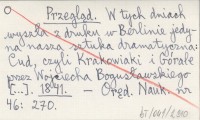 Przegląd. W tych dniach
wyszła z druku w Berlinie jedy-
na nasza sztuka dramatyczna:
Cud, czyli Krakowiaki i Górale
przez Wojciecha Bogusławskiego
[...]. 1841. — Oręd. Nauk. nr
46: 270.